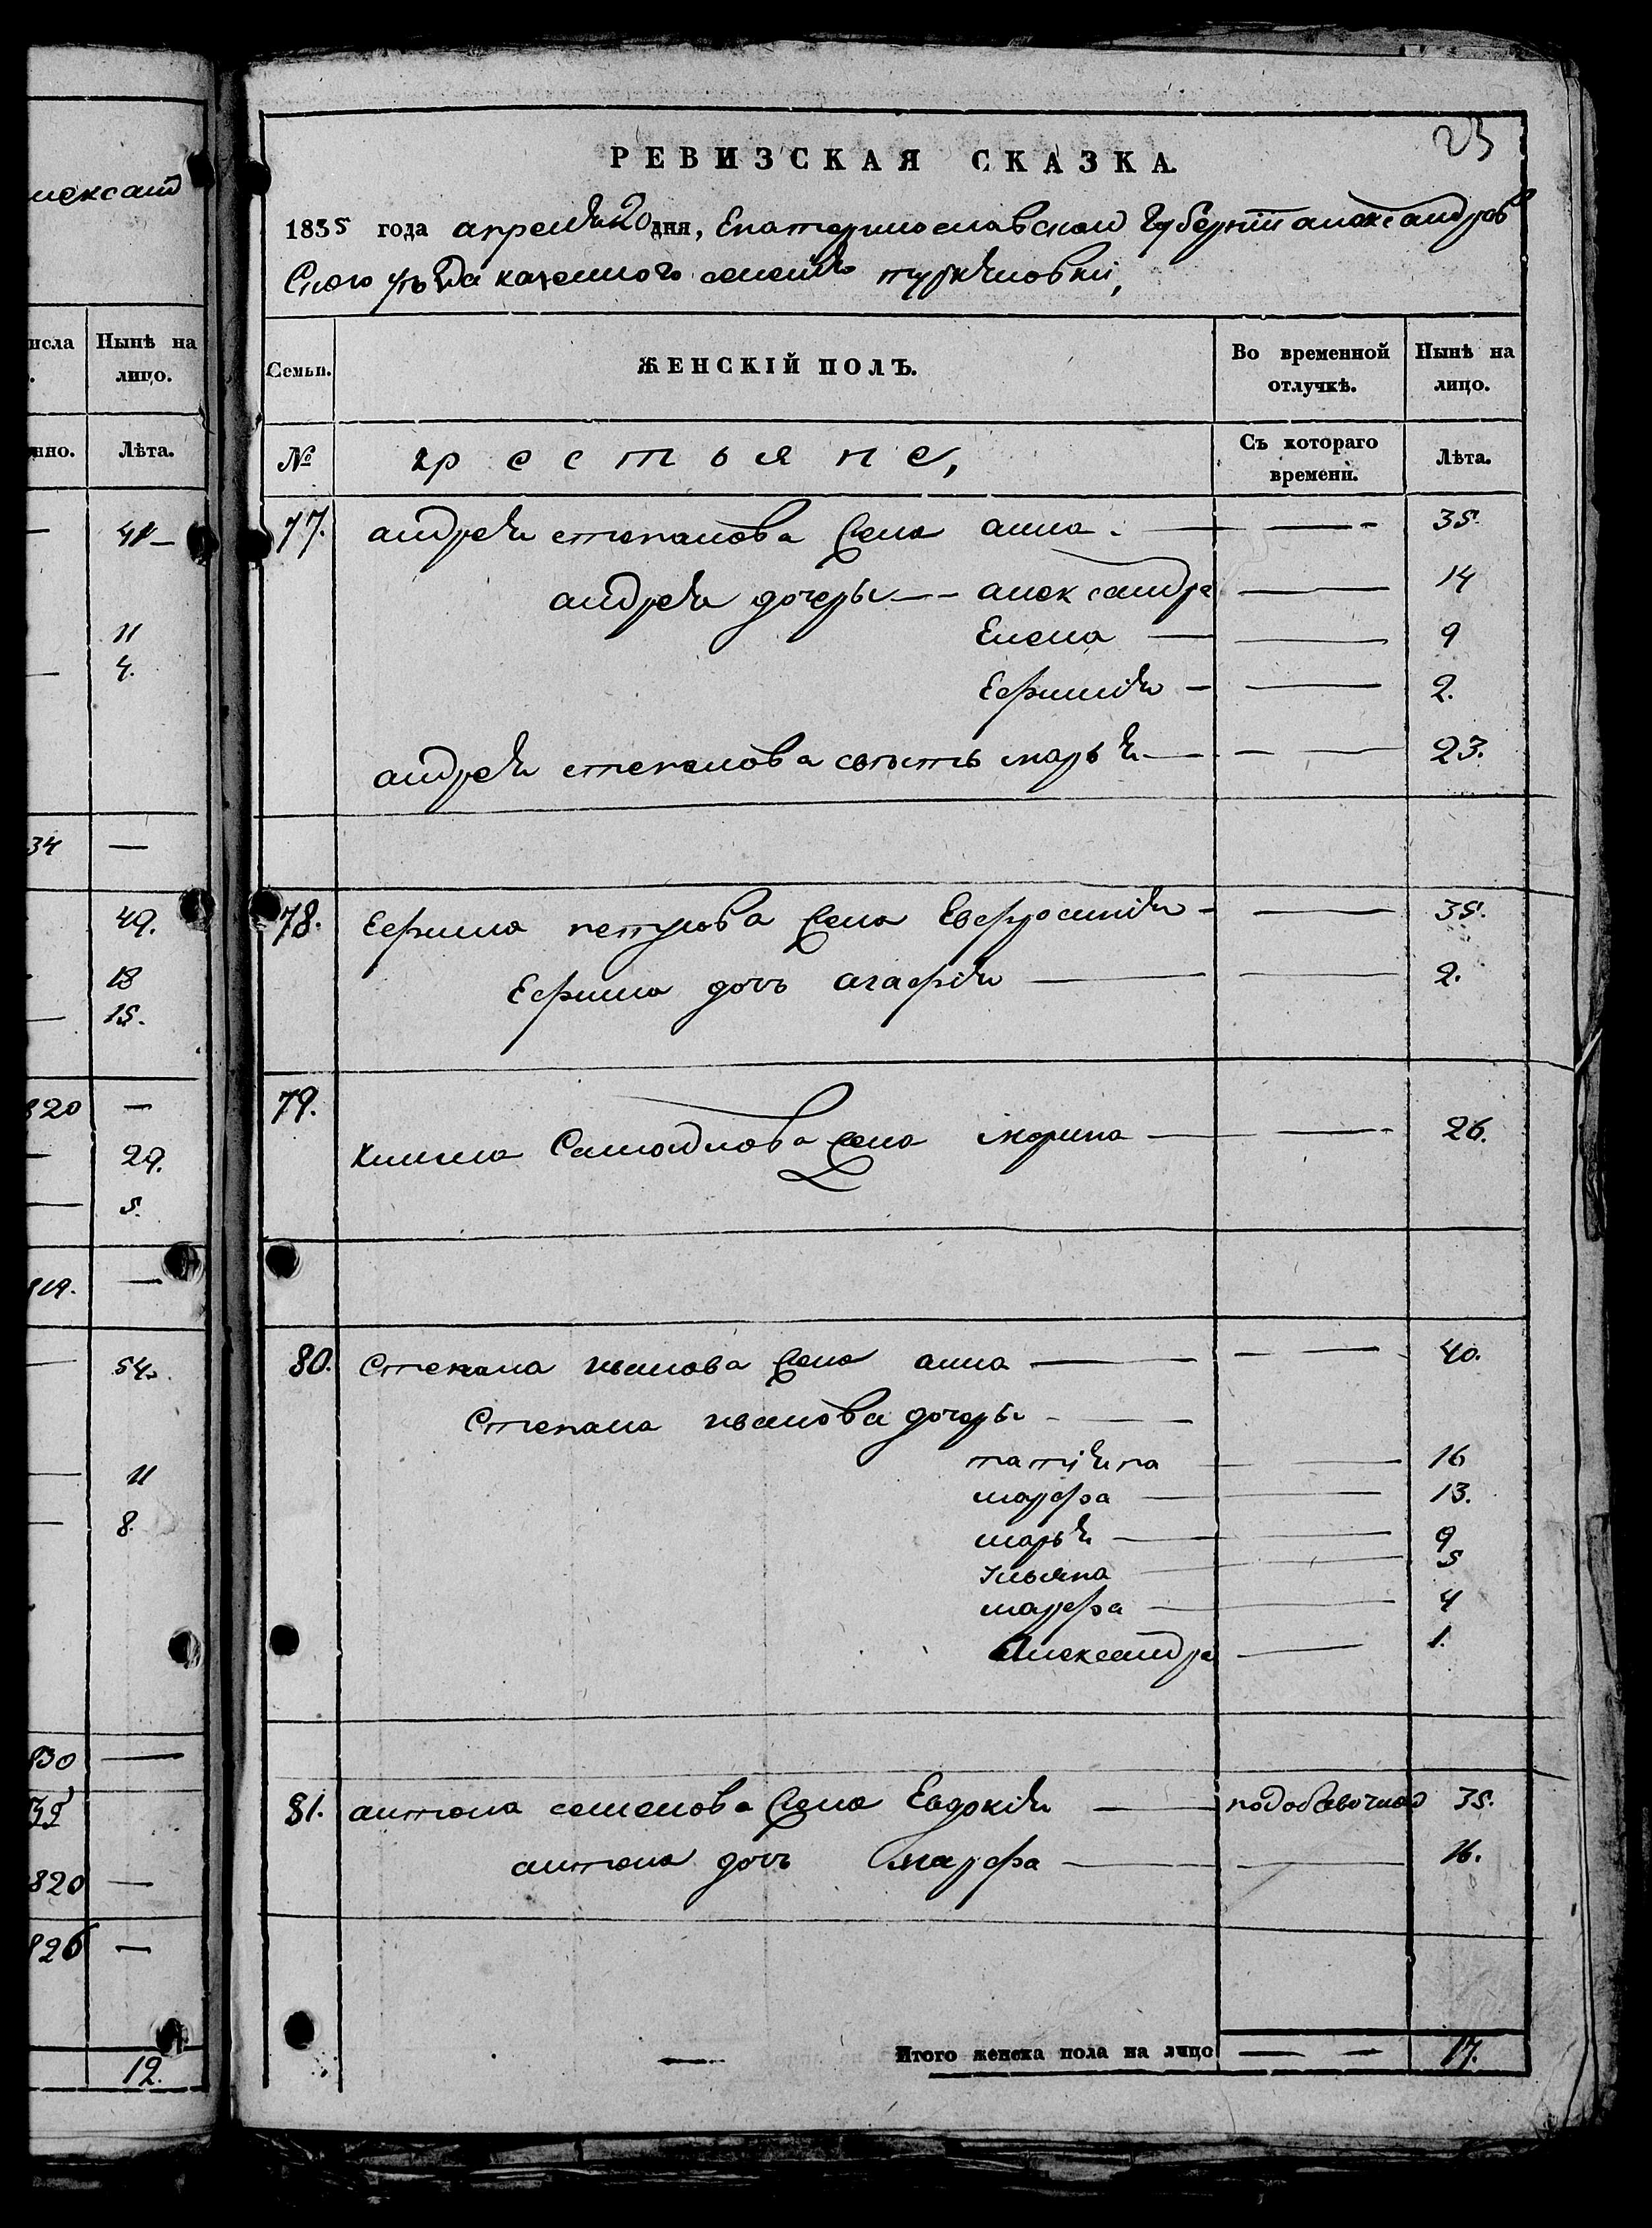 лександ
23
РЕВИЗСКАЯ СКАЗКА.
1835 года апреля 20 дня, Екатеринославской Губернїи александров
Ского уезда казенного селенїя туркеновки,
исла
Нынѣ на лицо.
Семьи.
ЖЕНСКІЙ ПОЛЪ.
Во временной отлучкѣ.
Нынѣ на лицо.
нно.
Лѣта.
№
крестьяне,
Съ котораго времени.
Лѣта.
77. андрея степанова Жена анна. — — 35.
андрея дочеры — александра — 14
Елена — — 9
Ефимїя — — 2.
андрея степанова марья — — 23.
78. Ефима петрова Жена Евфросинїя — — 35.
Ефима дочь агафїя — — 2.
79.
Клима Самойлова Жена марина — — 26.
80. Степана иванова Жена анна — — 40.
Степана иванова дочеры —
татїяна — — 16
марфа — — 13.
марья — — 9
Ульяна — — 5
марфа — — 4
Александра — 1.
81. антона семенова Жена Евдокїя — 35.
антона дочь Марфа — — 16.
Итого женска пола на лицо — — 17.
41 —
11
4.
34 —
49.
18
15.
820 —
29.
5.
819. —
54.
11
8.
830 —
820 —
826 —
12.